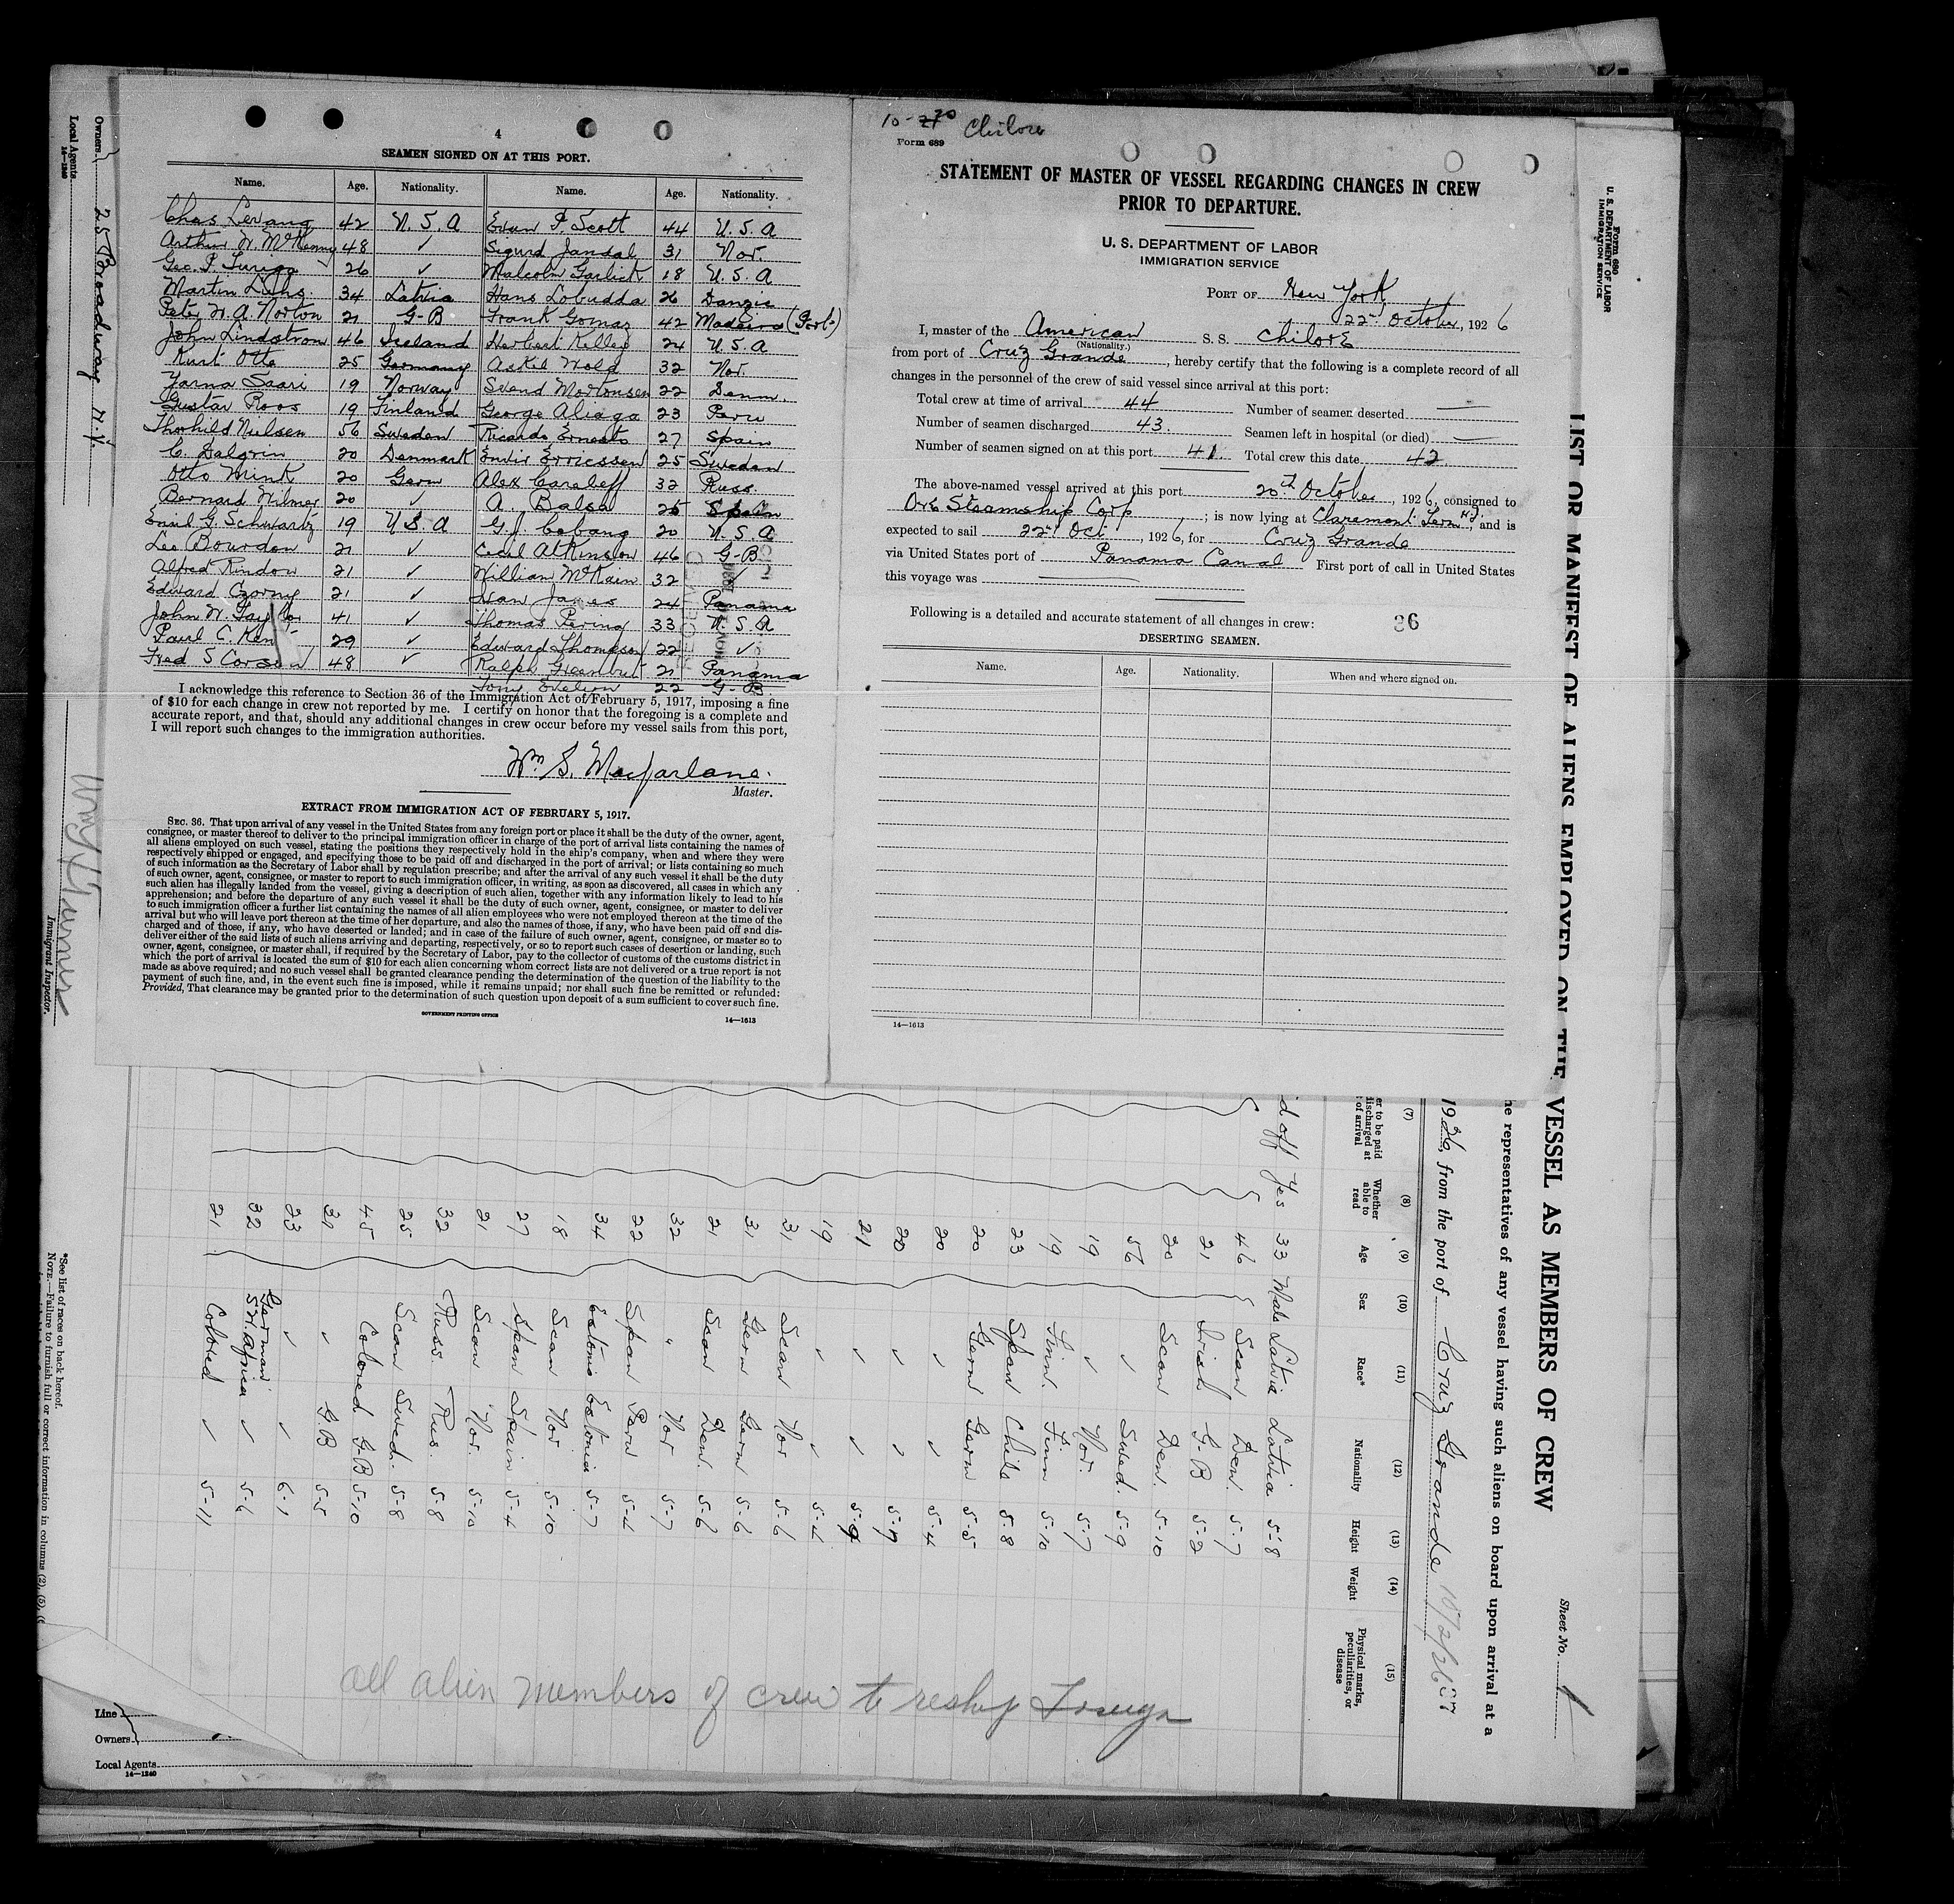 4
SEAMEN SIGNED ON AT THIS PORT.
Name. Age. Nationality. Name. Age. Nationality.
Chas Levang 42 U. S. A Evan P. Scott 44 U. S. A
Arthur W. McKenny 48 ✓ Sigurd Jandal 31 Nor.
Geo. P. 26 ✓ Malcolm Garlick 18 U. S. A
Martin 34 Latvia Hans Lobudda 26 Danzig
Peter W. A. Norton 21 G-B Frank Gomaz 42 Madeira (Port.)
John Lindstrom 46 Iceland Herbert Kelley 24 U. S. A
Kurt Otto 25 Germany Askel Wold 32 Nor.
Yarma Saari 19 Norway Svend Mortensen 22 Denm.
Gustav Roos 19 Finland George Aliaga 23 Peru
Thorhild Nielsen 56 Sweden Ricardo Ernesto 27 Spain
C. Dalgrin 20 Denmark Erricsson 25 Sweden
Otto Wink 20 Germ Alex 32 Russ.
Bernard Wilmer 20 ✓ A. Balsa 25 Spain
Emil G. Schwartz 19 U S A G. J. Cabang 20 U. S. A
Leo Bourdon 21 ✓ Cecil Atkinson 46 G-B
Alfred Kindow 21 ✓ William McKain 32 ✓
Edward Czorny 21 ✓ Ivan James 24 Panama
John W. Taylor 41 ✓ Thomas Pering 33 U. S. A
Paul C. Kent 29 ✓ Edward Thompson 22 ✓
Fred S Corson 48 ✓ Ralph 21 Panama
Tony 22 G-B.
I acknowledge this reference to Section 36 of the Immigration Act of February 5, 1917, imposing a fine
of $10 for each change in crew not reported by me. I certify on honor that the foregoing is a complete and
accurate report, and that, should any additional changes in crew occur before my vessel sails from this port,
I will report such changes to the immigration authorities.
Wm. S. Macfarlane.
Master.
EXTRACT FROM IMMIGRATION ACT OF FEBRUARY 5, 1917.
SEC. 36. That upon arrival of any vessel in the United States from any foreign port or place it shall be the duty of the owner, agent,
consignee, or master thereof to deliver to the principal immigration officer in charge of the port of arrival lists containing the names of
all aliens employed on such vessel, stating the positions they respectively hold in the ship's company, when and where they were
respectively shipped or engaged, and specifying those to be paid off and discharged in the port of arrival; or lists containing so much
of such information as the Secretary of Labor shall by regulation prescribe; and after the arrival of any such vessel it shall be the duty
of such owner, agent, consignee, or master to report to such immigration officer, in writing, as soon as discovered, all cases in which any
such alien has illegally landed from the vessel, giving a description of such alien, together with any information likely to lead to his
apprehension; and before the departure of any such vessel it shall be the duty of such owner, agent, consignee, or master to deliver
to such immigration officer a further list containing the names of all alien employees who were not employed thereon at the time of the
arrival but who will leave port thereon at the time of her departure, and also the names of those, if any, who have been paid off and dis-
charged and of those, if any, who have deserted or landed; and in case of the failure of such owner, agent, consignee, or master so to
deliver either of the said lists of such aliens arriving and departing, respectively, or so to report such cases of desertion or landing, such
owner, agent, consignee, or master shall, if required by the Secretary of Labor, pay to the collector of customs of the customs district in
which the port of arrival is located the sum of $10 for each alien concerning whom correct lists are not delivered or a true report is not
made as above required; and no such vessel shall be granted clearance pending the determination of the question of the liability to the
payment of such fine, and, in the event such fine is imposed, while it remains unpaid; nor shall such fine be remitted or refunded:
Provided, That clearance may be granted prior to the determination of such question upon deposit of a sum sufficient to cover such fine.
GOVERNMENT PRINTING OFFICE
14—1613
10-20 Chilore
Form 689
STATEMENT OF MASTER OF VESSEL REGARDING CHANGES IN CREW
PRIOR TO DEPARTURE.
U. S. DEPARTMENT OF LABOR
IMMIGRATION SERVICE
PORT OF New York
22nd October, 1926
I, master of the American S. S. Chilore
(Nationality.)
from port of Cruz Grande, hereby certify that the following is a complete record of all
changes in the personnel of the crew of said vessel since arrival at this port:
Total crew at time of arrival 44 Number of seamen deserted —
Number of seamen discharged 43. Seamen left in hospital (or died) —
Number of seamen signed on at this port 41. Total crew this date 42.
The above-named vessel arrived at this port 20th October, 1926, consigned to
Ore Steamship Corp; is now lying at Claremont Term N.J., and is
expected to sail 22nd Oct, 1926, for Cruz Grande
via United States port of Panama Canal First port of call in United States
this voyage was —
Following is a detailed and accurate statement of all changes in crew: 36
DESERTING SEAMEN.
Name. Age. Nationality. When and where signed on.
14—1613
Form 680
U. S. DEPARTMENT OF LABOR
IMMIGRATION SERVICE
Sheet No. 1
LIST OR MANIFEST OF ALIENS EMPLOYED ON THE VESSEL AS MEMBERS OF CREW
he representatives of any vessel having such aliens on board upon arrival at a
1926, from the port of Cruz Grande
(7) (8) (9) (10) (11) (12) (13) (14) (15)
er to be paid discharged at of arrival Whether able to read Age Sex Race* Nationality Height Weight Physical marks, peculiarities, or disease
d off Yes 33 Male Latvia Latvia 5-8
46 Scan Den. 5-7
21 Irish G-B 5-2
20 Scan Den. 5-10
56 ✓ Swed. 5-9
19 ✓ Nor. 5-7
19 Finn. Finn 5-10
23 Span Chile 5-8
20 Germ Germ 5-5
20 ✓ ✓ 5-4
20 ✓ ✓ 5-9
21 ✓ ✓ 5-9
19 ✓ ✓ 5-6
31 Scan Nor 5-6
31 Germ Germ 5-6
21 Scan Den. 5-6
32 " Nor 5-7
22 Span Peru 5-4
34 Estonia Estonia 5-7
18 Scan Nor 5-10
27 Span Spain 5-4
21 Scan Nor. 5-10
32 Russ. Rus. 5-8
25 Scan Swed. 5-8
45 Colored G-B 5-10
31 ✓ G.B 5-5
23 ✓ ✓ 6-1
32 German S.W. Africa ✓ 5-6
21 Colored ✓ 5-11
all alien members of crew to reship Foreign
Owners 25 Broadway N.Y.
Local Agents
14—1240
Immigrant Inspector.
*See list of races on back hereof.
NOTE.—Failure to furnish full or correct information in columns (2), (5), (6
Line
Owners
Local Agents
14—1240